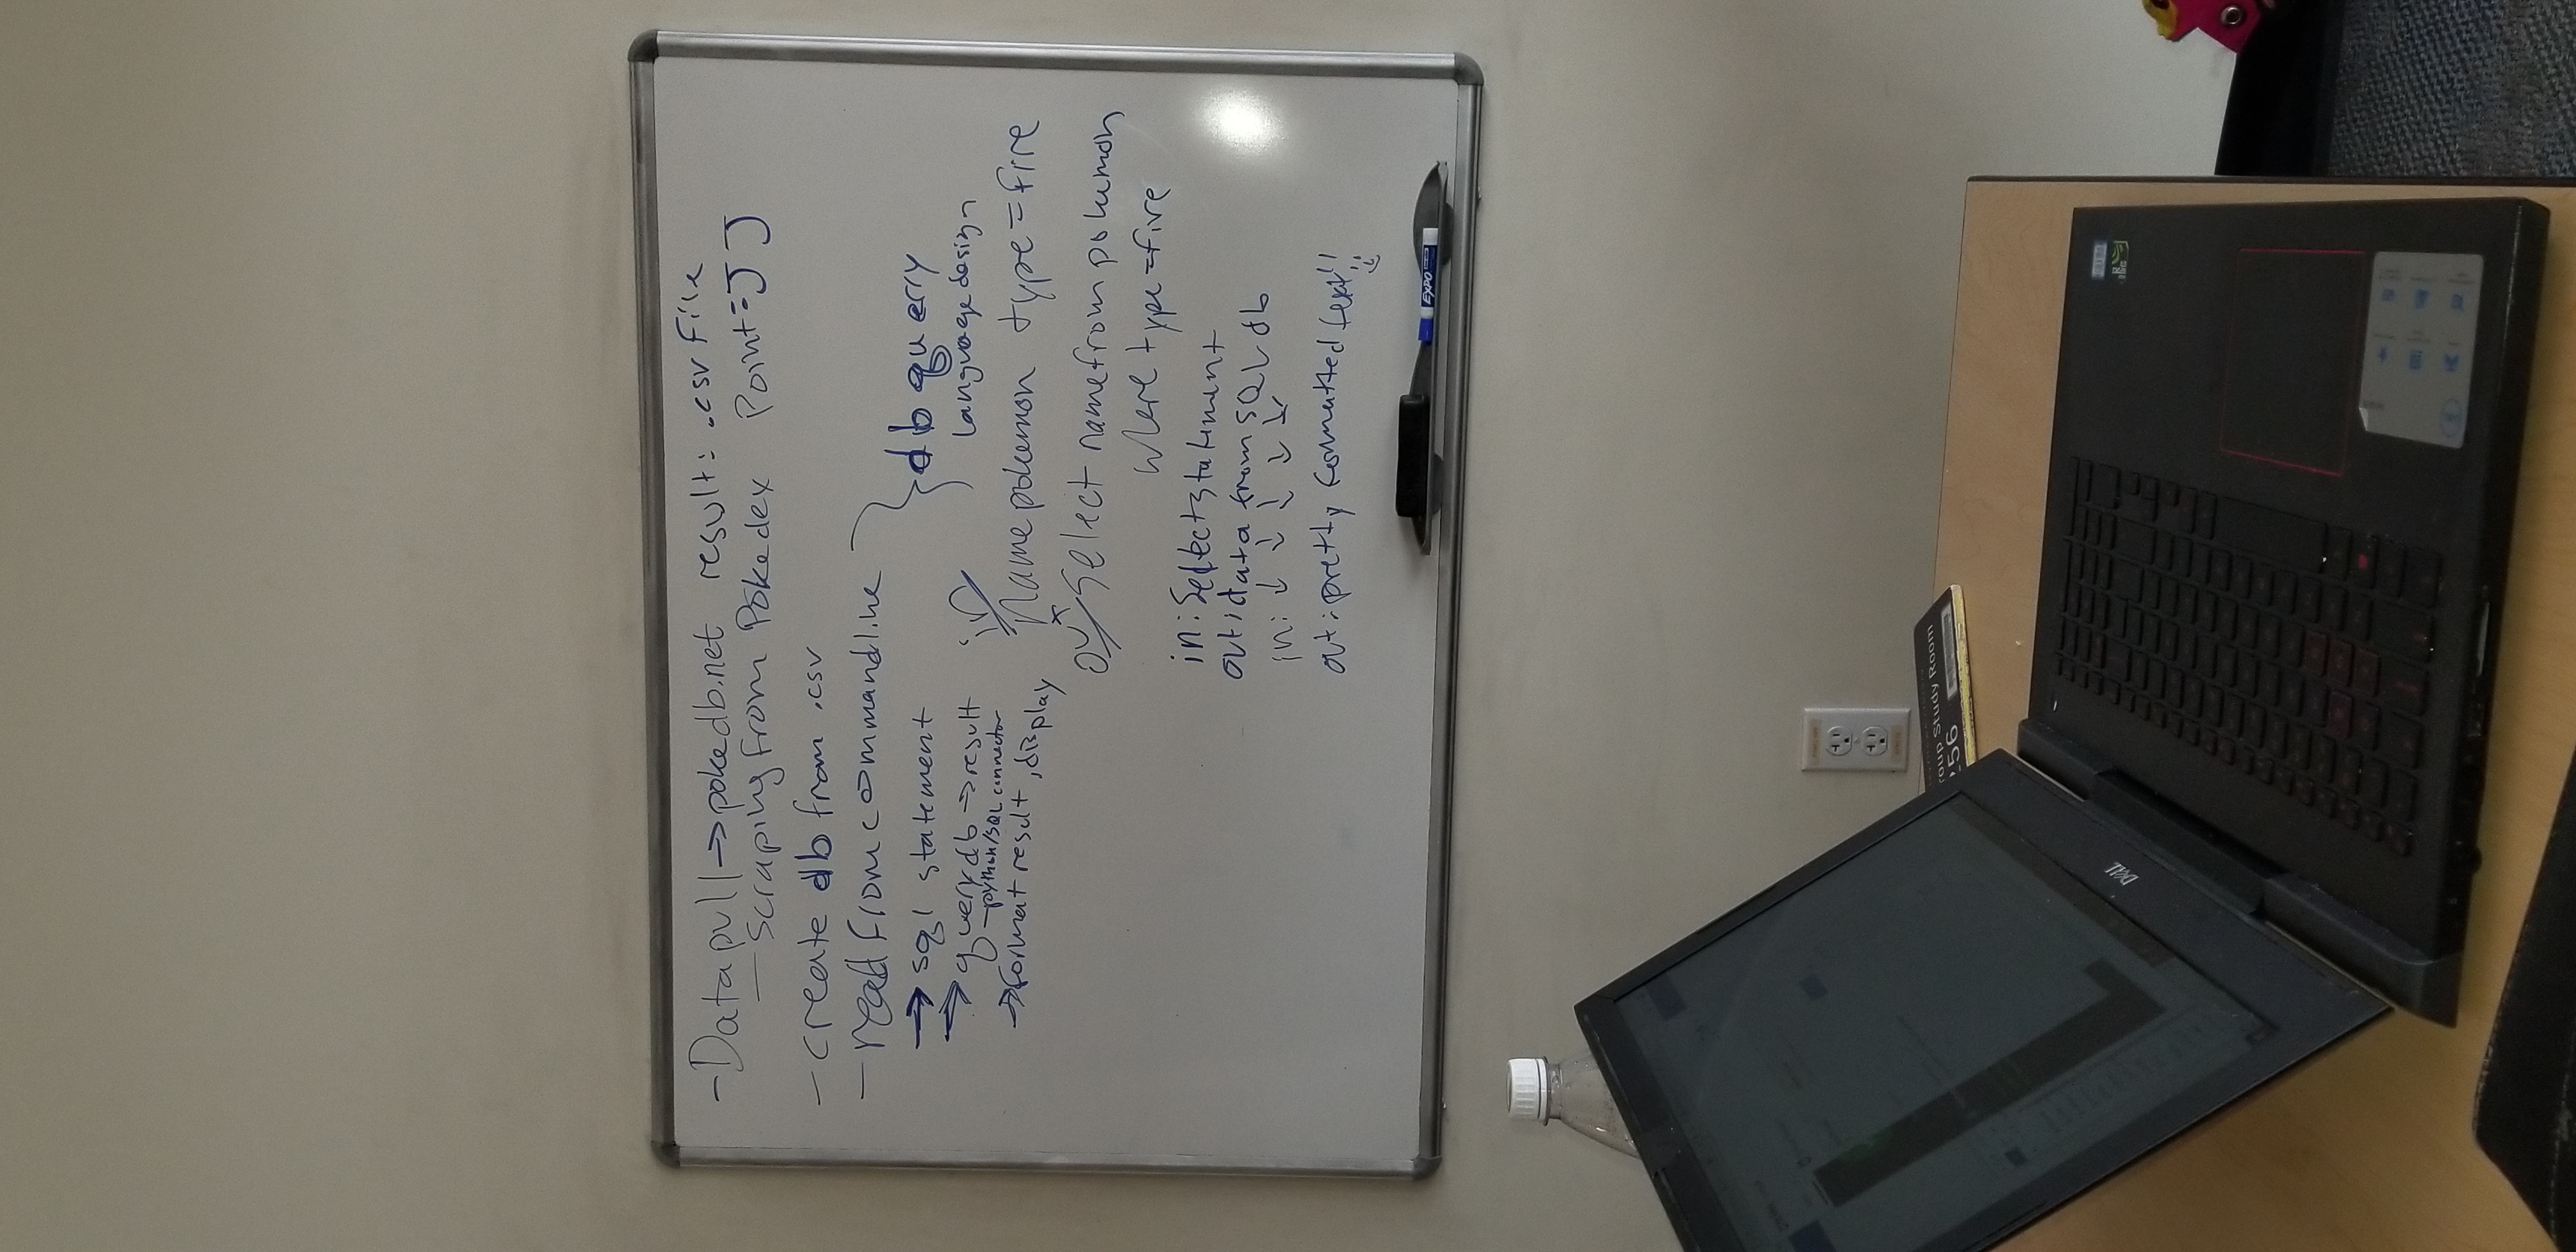 - Data pull → pokedb.net result: .csv File
- scraping from Pokedex Point = JJ
- create db from .csv
- read from commandline
→ sql statement
→ query db → result
- python/SQL connector
→ format result, display
db querry
language design
in
Name pokemon type = fire
out
Select name from pokemon
where type = fire
in: Select statement
out: data from SQL db
in: ↓ ↓ ↓ ↓ ↓
out: pretty formatted text!!
EXPO
roup Study Room
256
DELL